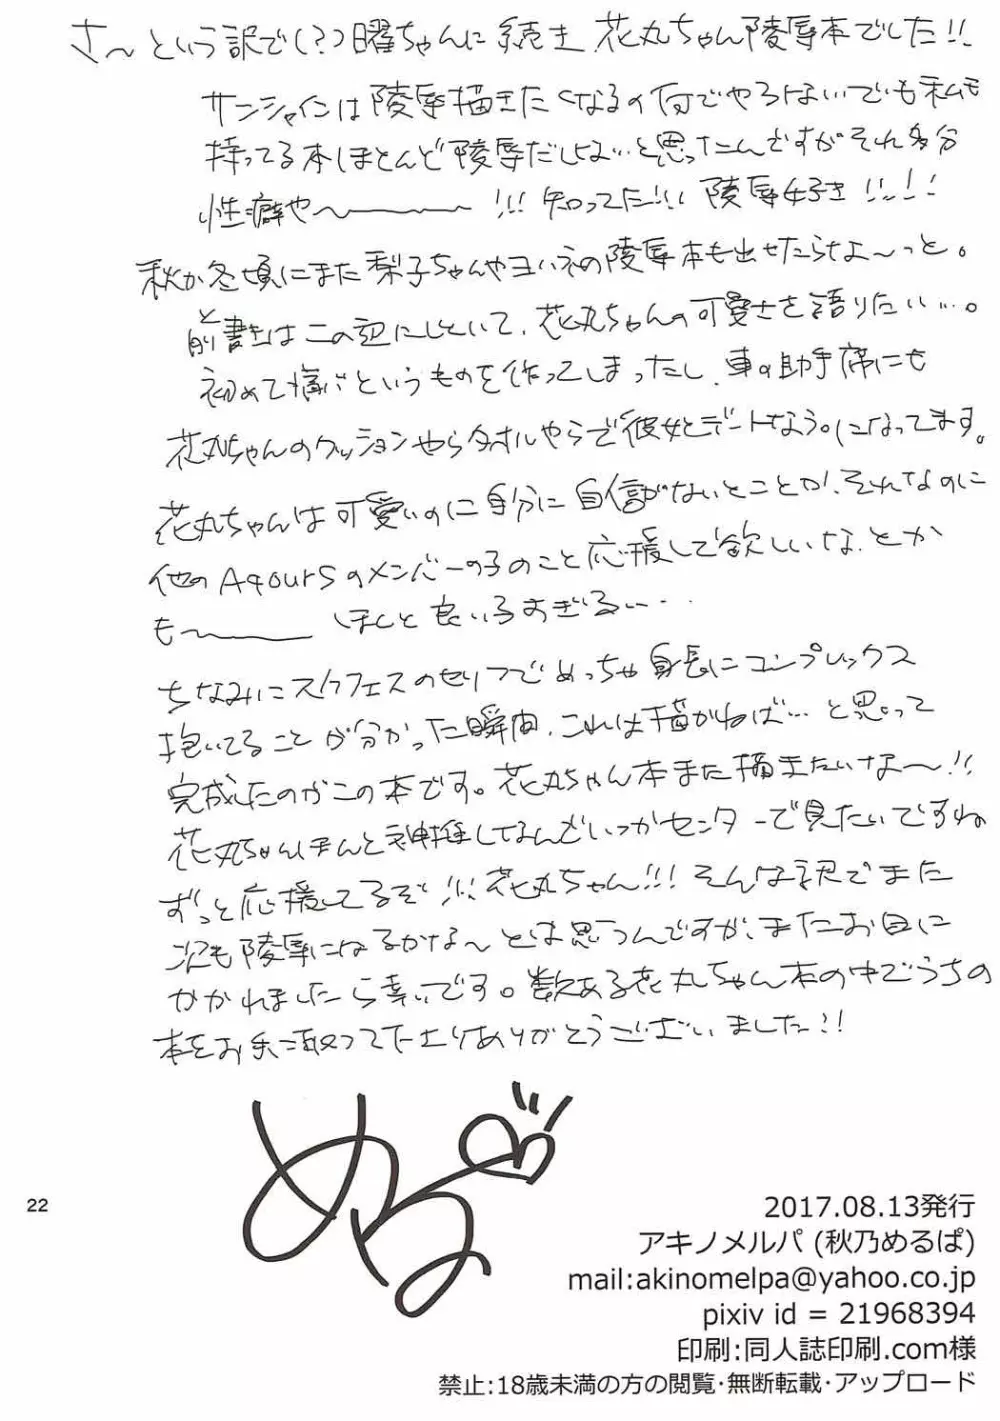 さ～という訳で(?)曜ちゃんに続き花丸ちゃん陵辱本でした!!
サンシャインは陵辱描きたくなるの何でやろない でも私も
持ってる本ほとんど陵辱だしな…と思ったんですがそれ多分
性癖や～!!! 知ってた!!! 陵辱好き!!!!
秋か冬頃にまた梨子ちゃんやヨハネの陵辱本も出せたらなぁ～っと。
と前書きはこの辺にしといて、花丸ちゃんの可愛さを語りたい…。
初めて痛バというものを作ってしまったし、車の助手席にも
花丸ちゃんのクッションやらタオルやらで彼女とデートなう。になってます。
花丸ちゃんは可愛いのに自分に自信がないとことか、それなのに
他のAqoursのメンバーの子のこと応援して欲しいな、とか
も～ ほんと良い子すぎる…
ちなみにスクフェスのセリフでめっちゃ身長にコンプレックス
抱いてることが分かった瞬間、これは描かねば…と思って
完成したのがこの本です。花丸ちゃん本また描きたいなぁ～!!
花丸ちゃんほんと神推してるんでいつかセンターで見たいですね
ずっと応援してるぞ!!! 花丸ちゃん!!! そんな訳でまた
次も陵辱になるかな～とは思うんですが、またお目に
かかれましたら幸いです。数ある花丸ちゃん本の中でうちの
本をお手に取って下さりありがとうございました!!
める
22
2017.08.13発行
アキノメルパ (秋乃めるぱ)
mail:akinomelpa@yahoo.co.jp
pixiv id = 21968394
印刷:同人誌印刷.com様
禁止:18歳未満の方の閲覧・無断転載・アップロード